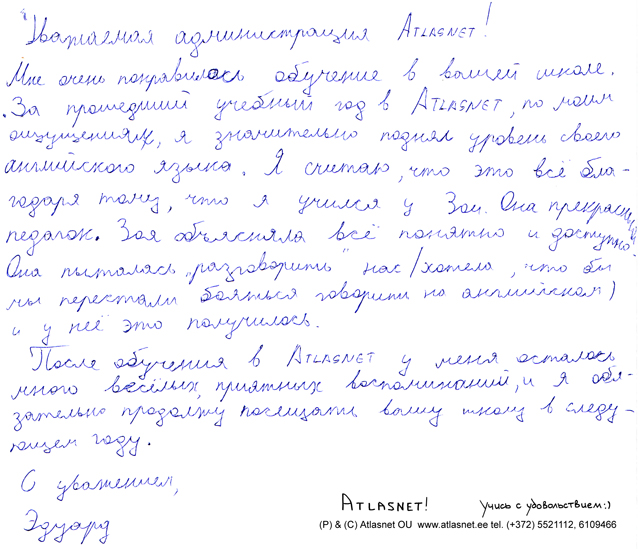 Уважаемая администрация ATLASNET!
Мне очень понравилось обучение в вашей школе.
За прошедший учебный год в ATLASNET, по моим
ощущениям, я значительно поднял уровень своего
английского языка. Я считаю, что это всё бла-
годаря тому, что я учился у Зои. Она прекрасный
педагог. Зоя объясняла всё понятно и доступно.
Она пыталась „разговорить" нас /хотела, что бы
мы перестали бояться говорить на английском)
и у неё это получилось.
После обучения в ATLASNET у меня осталось
много весёлых, приятных воспоминаний, и я обя-
зательно продолжу посещать вашу школу в следу-
ющем году.
С уважением,
Эдуард
ATLASNET! Учись с удовольствием:)
(P) & (C) Atlasnet OU www.atlasnet.ee tel. (+372) 5521112, 6109466